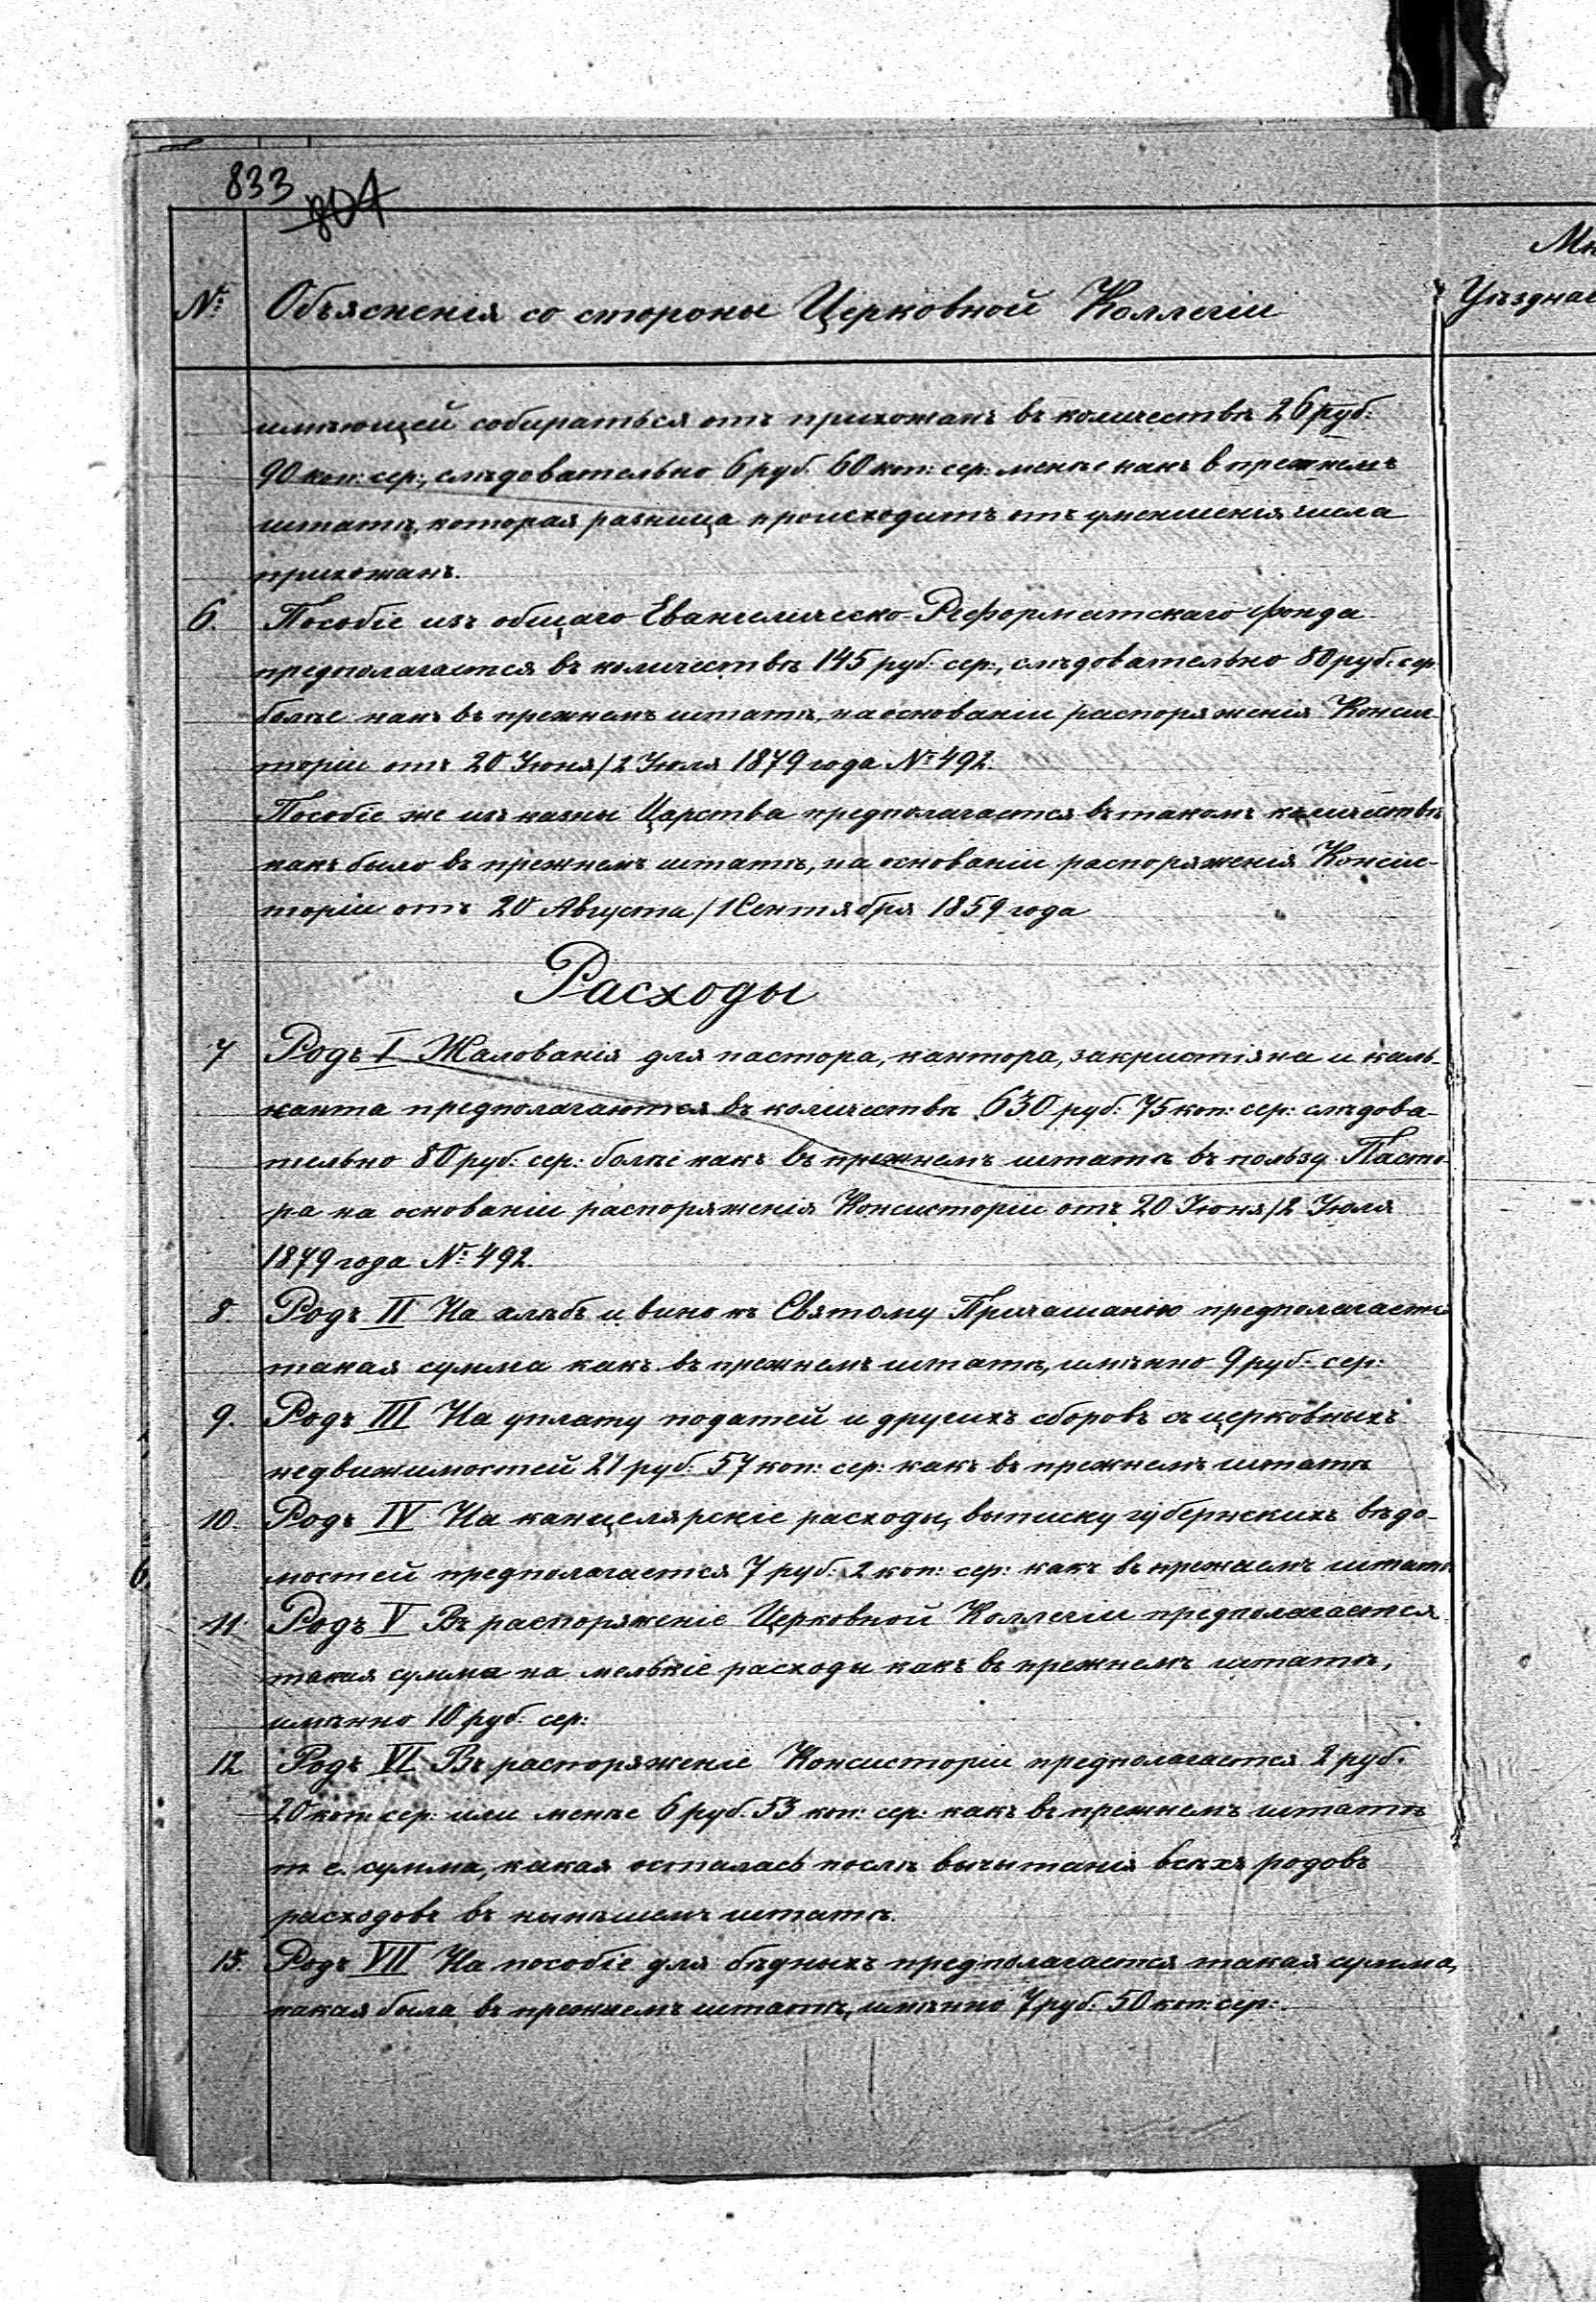 833
804
Мн
№ Объясненія со стороны Церковной Коллегіи
Уѣзднаг
имѣющей собираться отъ прихожанъ въ количествѣ 26 руб:
90 коп: сер:, слѣдовательно 6 руб. 60 коп: сер: менѣе какъ в прежнемъ
штатѣ, которая разница происходитъ отъ уменшенія числа
прихожанъ.
6. Пособіе изъ общаго Евангелическо-Реформатскаго фонда
предполагается въ количествѣ 145 руб: сер:, слѣдовательно 80 руб: сер:
болѣе какъ въ прежнемъ штатѣ, на основаніи распоряженія Консис-
торіи отъ 20 Іюня/2 Іюля 1879 года № 492.
Пособіе же изъ казны Царства предполагается въ такомъ количествѣ
какъ было въ прежнемъ штатѣ, на основаніи распоряженія Консис-
торіи отъ 20 Августа/1 Сентября 1859 года
Расходы
7 Родъ I Жалованія для пастора, кантора, закристіяна и каль-
канта предполагаются въ количествѣ 630 руб: 75 коп: сер: слѣдова-
тельно 80 руб: сер: болѣе какъ въ прежнемъ штатѣ въ пользу Пасто-
ра на основаніи распоряженія Консисторіи отъ 20 Іюня/2 Іюля
1879 года № 492.
8. Родъ II На хлѣбъ и вино къ Святому Причащанію предполагается
такая сумма какъ въ прежнемъ штатѣ, имѣнно 9 руб: сер:
9. Родъ III На уплату податей и другихъ сборовъ съ церковныхъ
недвижимостей 21 руб: 57 коп: сер: какъ въ прежнемъ штатѣ
10. Родъ IV На канцелярскіе расходы, выписку губернскихъ вѣдо-
мостей предполагается 7 руб: 2 коп: сер: какъ въ прежнемъ штатѣ
11. Родъ V Въ распоряженіе Церковной Коллегіи предполагается
такая сумма на мелькіе расходы какъ въ прежнемъ штатѣ,
имѣнно 10 руб: сер:
12 Родъ VI Въ распоряженіе Консисторіи предполагается 2 руб.
20 коп: сер: или менѣе 6 руб. 53 коп: сер: какъ въ прежнемъ штатѣ
т е. сумма, какая осталась послѣ вычытанія всѣхъ родовъ
расходовъ въ нынѣшемъ штатѣ.
13. Родъ VII На пособіе для бѣдныхъ предполагается такая сумма,
какая была въ прежнемъ штатѣ, имѣнно 7 руб: 50 коп: сер: